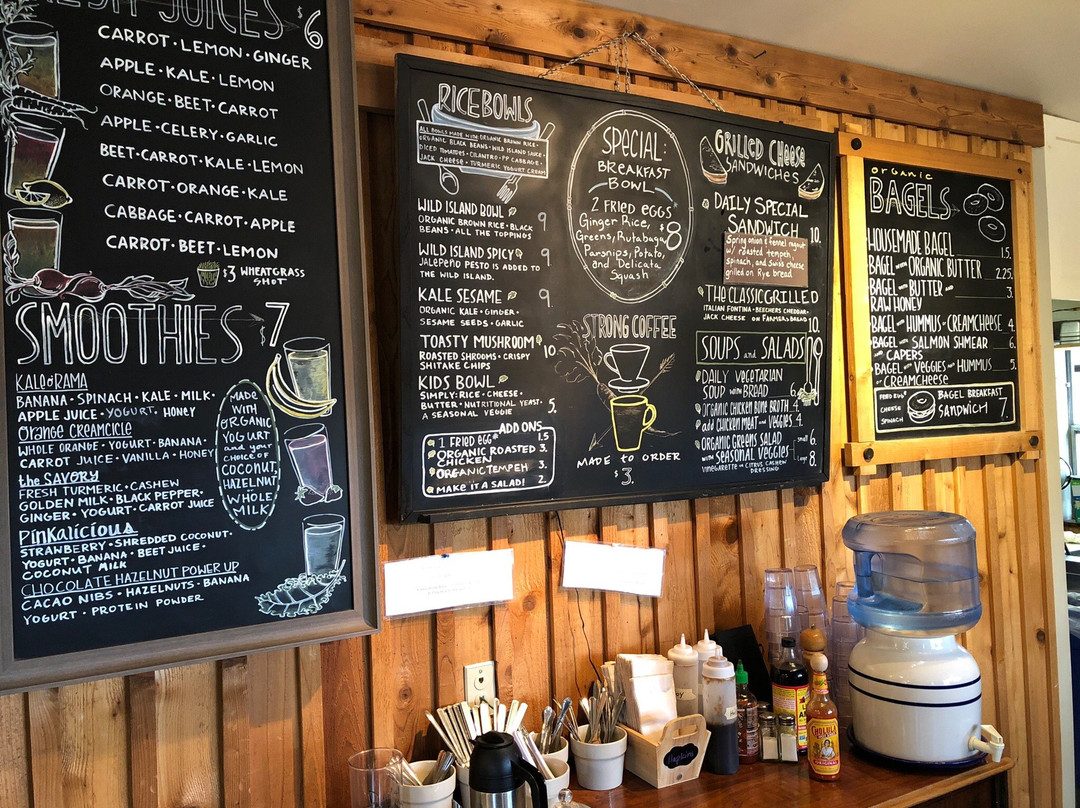 FRESH JUICES $6
CARROT·LEMON·GINGER
APPLE·KALE·LEMON
ORANGE·BEET·CARROT
APPLE·CELERY·GARLIC
BEET·CARROT·KALE·LEMON
CARROT·ORANGE·KALE
CABBAGE·CARROT·APPLE
CARROT·BEET·LEMON
$3 WHEATGRASS
SHOT
SMOOTHIES $7
KALE O RAMA
BANANA·SPINACH·KALE·MILK·
APPLE JUICE·YOGURT·HONEY
Orange CREAMCICLE
WHOLE ORANGE·YOGURT·BANANA·
CARROT JUICE·VANILLA·HONEY
the SAVORY
FRESH TURMERIC·CASHEW
GOLDEN MILK·BLACK PEPPER·
GINGER·YOGURT·CARROT JUICE
PINKALICIOUS
STRAWBERRY·SHREDDED COCONUT·
YOGURT·BANANA·BEET JUICE·
COCONUT MILK
CHOCOLATE HAZELNUT POWER UP
CACAO NIBS·HAZELNUTS·BANANA
YOGURT·PROTEIN POWDER
MADE
WITH
ORGANIC
YOGURT
and your
CHOICE OF
COCONUT,
HAZELNUT,
WHOLE
MILK
RICE BOWLS
ALL BOWLS MADE with: ORGANIC BROWN RICE·
ORGANIC BLACK BEANS·WILD ISLAND SAUCE·
DICED TOMATOES·CILANTRO·PF CABBAGE·
JACK CHEESE·TURMERIC YOGURT CREAM
WILD ISLAND BOWL 9
ORGANIC BROWN RICE·BLACK
BEANS·ALL THE TOPPINGS
WILD ISLAND SPICY 9
JALEPEÑO PESTO IS ADDED TO
THE WILD ISLAND.
KALE SESAME 9
ORGANIC KALE·GINGER·
SESAME SEEDS·GARLIC
TOASTY MUSHROOM 10.
ROASTED SHROOMS·CRISPY
SHITAKE CHIPS
KIDS BOWL 5.
SIMPLY: RICE·CHEESE·
BUTTER·NUTRITIONAL YEAST·
A SEASONAL VEGGIE
ADD ONS
1 FRIED EGG* 1.5
ORGANIC ROASTED 3.
CHICKEN
ORGANIC TEMPEH 3.
MAKE IT A SALAD! 2.
SPECIAL:
BREAKFAST
BOWL
2 FRIED EGGS
Ginger Rice,
Greens, Rutabaga $8
Parsnips, Potato,
and Delicata
Squash
STRONG COFFEE
MADE to ORDER
$3.
GRILLED CHEESE
SANDWICHES
DAILY SPECIAL
SANDWICH 10.
Spring onion & fennel ragout
w/ roasted tempeh,
spinach, and swiss cheese
grilled on Rye bread
The CLASSIC GRILLED
ITALIAN FONTINA·BEECHERS CHEDDAR·
JACK CHEESE ON FARMERS BREAD 10.
SOUPS and SALADS
DAILY VEGETARIAN
SOUP with BREAD 6.
ORGANIC CHICKEN BONE BROTH 4.
add CHICKEN MEAT and VEGGIES 4.
ORGANIC GREENS SALAD small 6.
with SEASONAL VEGGIES large 8.
VINEGARETTE or CITRUS CASHEW
DRESSING
organic
BAGELS
HOUSEMADE BAGEL 1.5.
BAGEL with ORGANIC BUTTER 2.25.
BAGEL with BUTTER and 3.
RAW HONEY
BAGEL with HUMMUS or CREAMCHEESE 4.
BAGEL with SALMON SHMEAR 6.
with CAPERS
BAGEL with VEGGIES with HUMMUS 5.
or CREAMCHEESE
FRIED EGG*
CHEESE
SPINACH
BREAKFAST
SANDWICH 7.
Napkins
CHOLULA